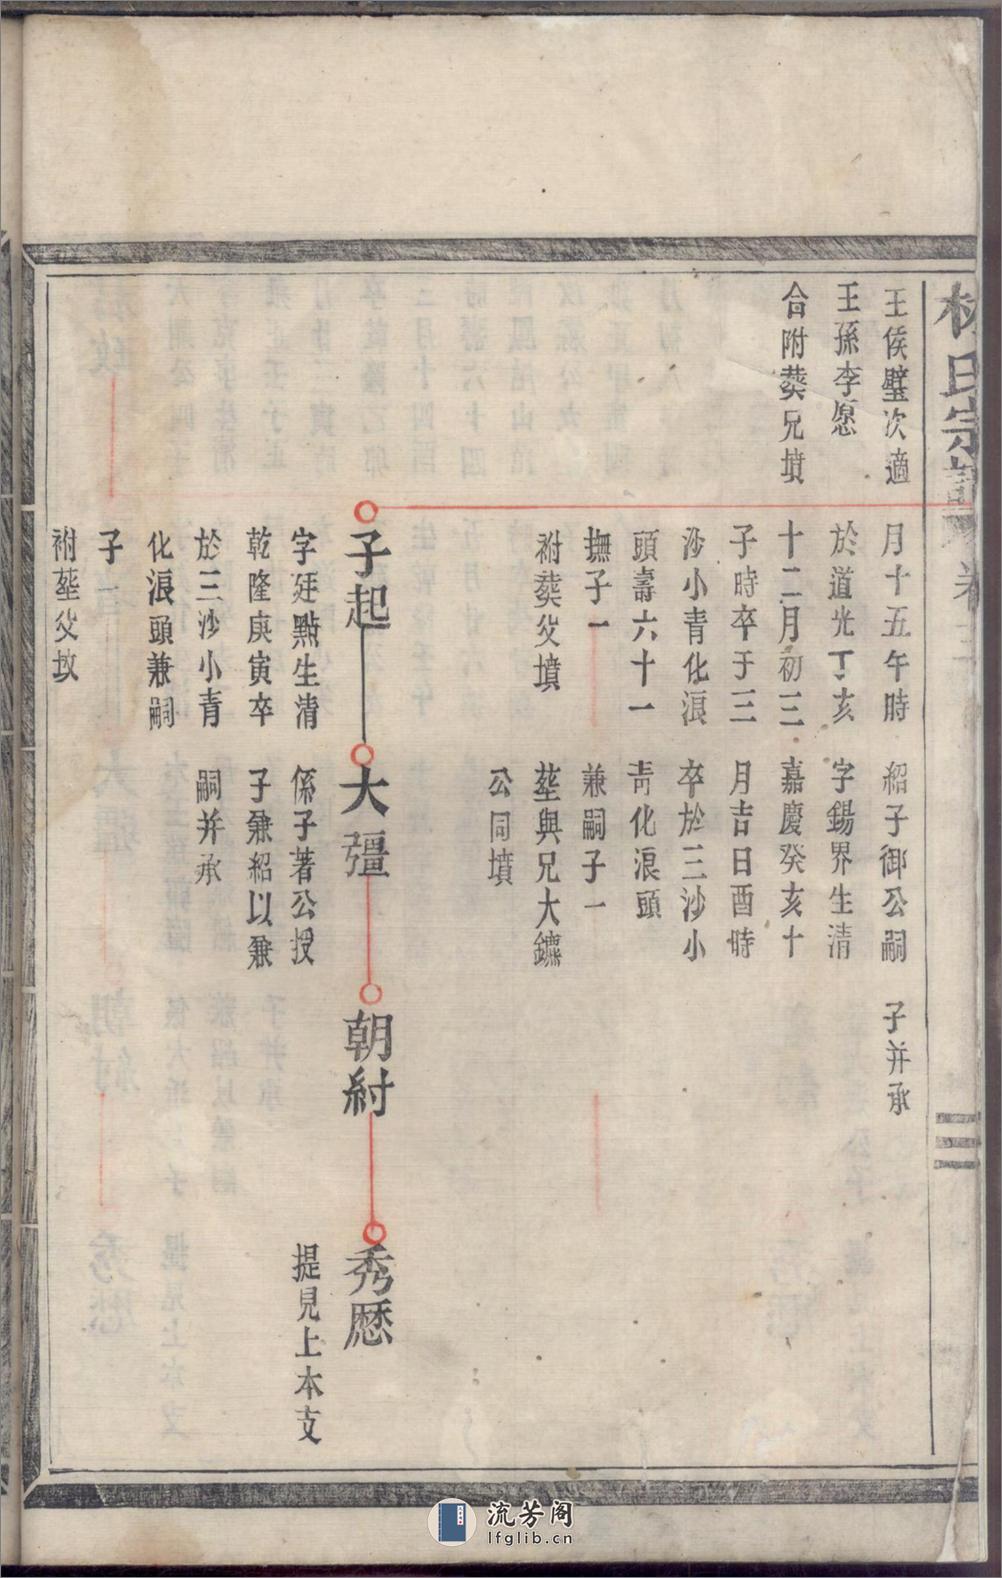 林氏宗譜
王侯璧次適
王孫李愿
合附葬兄墳
月十五午時
於道光丁亥
十二月初三
子時卒于三
沙小青化浪
頭壽六十一
撫子一
祔葬父墳
紹子御公嗣
字錫界生清
嘉慶癸亥十
月吉日酉時
卒於三沙小
青化浪頭
兼嗣子一
塟與兄大鑣
公同墳
子并承
子起
字廷點生清
乾隆庚寅卒
於三沙小青
化浪頭兼嗣
子一
祔塟父坟
大彊
係子著公投
子兼紹以兼
嗣并承
朝紂
秀歷
提見上本支
流芳阁
lfglib.cn